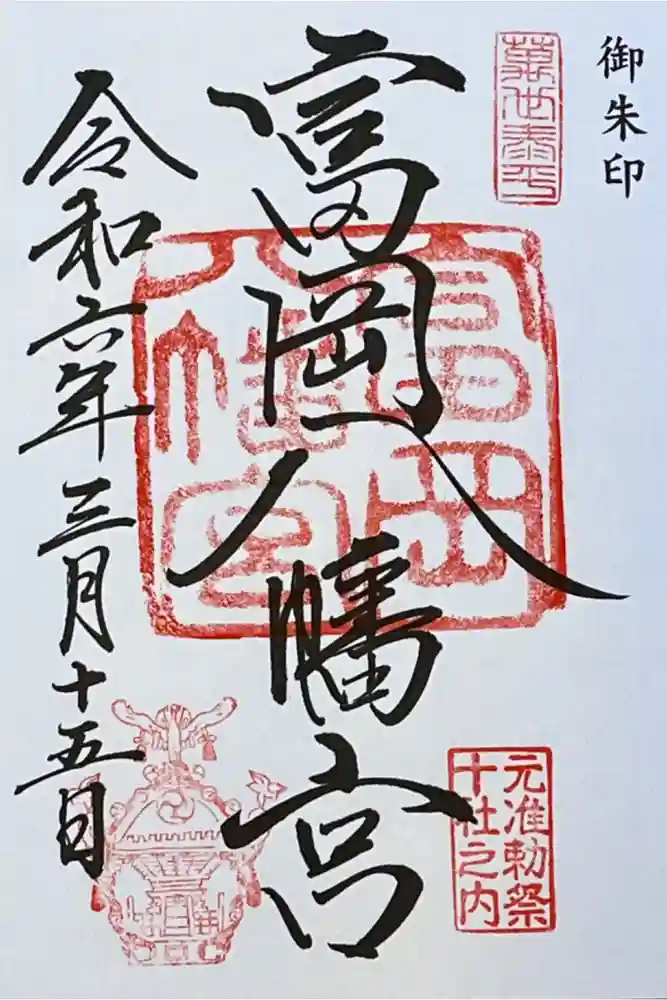 御朱印
萬世泰平
富岡八幡宮
富岡八幡宮
元准勅祭
十社之内
令和六年三月十五日